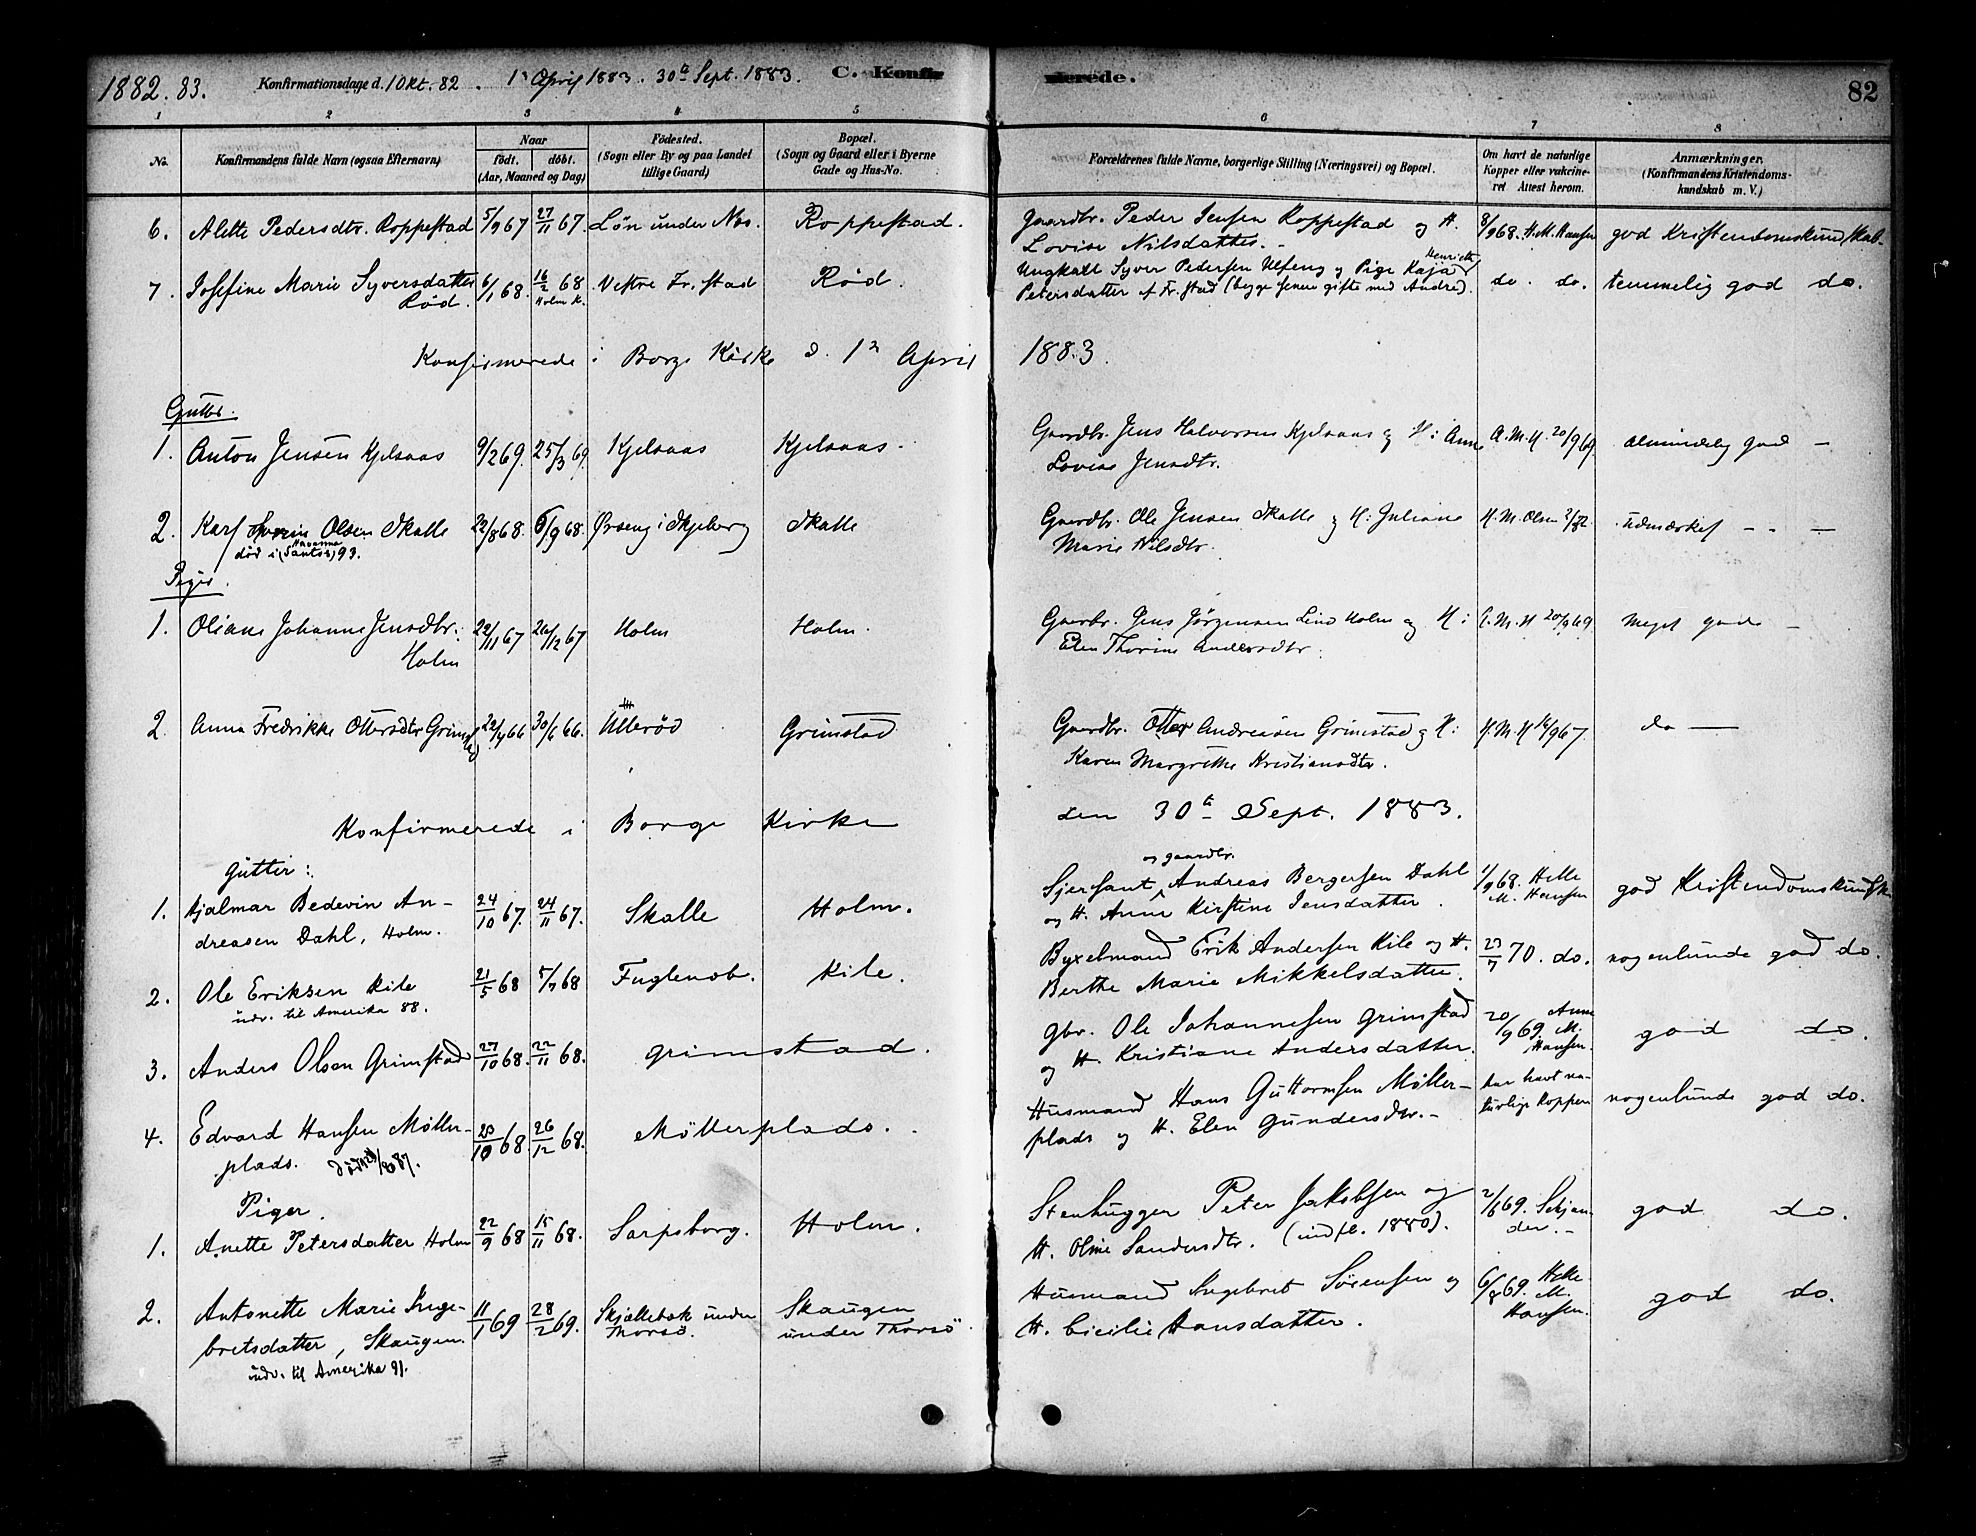 1882.83. Konfirmationsdage d. 1 Okt. 82. 1ˢ April 1883. 30ᵗᵉ Sept. 1883. C. Konfirmerede. 82
1 2 3 4 5 6 7 8
No. Konfirmandens fulde Navn (ogsaa Efternavn) Naar født. døbt. (Aar, Maaned og Dag) Fødested. (Sogn eller By og paa Landet tillige Gaard) Bopæl. (Sogn og Gaard eller i Byerne Gade og Hus-No. Forældrenes fulde Navne, borgerlige Stilling (Næringsvei) og Bopæl. Om havt de naturlige Kopper eller vakcineret Attest herom. Anmærkninger. (Konfirmandens Kristendomskundskab m. V.)
6. Alette Pedersdtr. Roppestad 5/9 67 27/11 67. Løn under Nes. Roppestad. Gaardbr. Peder Jensen Roppestad og H. 8/9 68. H. M. Hansen god Kristendomskundskab.
Lovise Nilsdatter.
7. Josefine Marie Syversdatter 6/1 68. 16/2 68 Vestre Fr.stad Rød. Ungkall Syver Pedersen Ulfeng og Pige Kaja Henriette do. do. temmelig god do.
Rød. Holm K. Petersdatter af Fr.stad (begge senere gifte med Andre).
Konfirmerede i Borge Kirke d. 1ⁿ April 1883
Gutter.
1. Anton Jensen Kjelsaas 9/2 69. 25/3 69. Kjelsaas Kjelsaas. Gaardbr. Jens Halvorsen Kjelsaas og H: Anne A. M. H. 20/9 69. almindelig god —
Lovise Jensdtr.
2. Karl Severin Olsen Skalle 22/8 68. 6/9 68. Ørseng i Skjeberg Skalle Gaardbr. Ole Jensen Skalle og H: Juliane H. M. Olsen 2/ 82 udmærket — —
død i (Santos) Havanna 93. Marie Nilsdtr.
Piger.
1. Oliane Johanne Jensdtr. 22/11 67 26/12 67 Holm Holm. Gaardbr. Jens Jørgensen Lind Holm og H: A. M. H 20/9 69 meget god —
Holm Elen Thorine Andersdtr.
2. Anna Fredrikke Ottersdtr Grimstad 22/4 66 30/6 66. Ullerød Grimstad Gaardbr. Otter Andreasen Grimstad og H: H. M. H 16/9 67. do —
Karen Margrethe Kristiansdtr.
Konfirmerede i Borge Kirke den 30ᵗᵉ Sept. 1883.
Gutter:
1. Hjalmar Bedevin An- 24/10 67. 24/11 67. Skalle Holm. Sjersant og gaardbr. Andreas Bergersen Dahl 1/9 68. Helle god Kristendomskundsk
dreasen Dahl, Holm. og H. Anne Kirstine Jensdatter. M. Hansen
2. Ole Eriksen Kile 21/5 68 5/7 68 Fuglenæb. Kile. Byxelmand Erik Andersen Kile og H. 23/7 70. do. nogenlunde god do.
udv. til Amerika 88. Berthe Marie Mikkelsdatter.
3. Anders Olsen Grimstad 27/10 68. 22/11 68. Grimstad. Gbr. Ole Johannesen Grimstad 20/9 69. Anne M. Hansen. god do.
og H. Kristiane Andersdatter.
4. Edvard Hansen Møller- 23/10 68. 26/12 68. Møllerplads. Husmand Hans Guttormsen Møller- har havt na- nogenlunde god do.
plads. død 87. plads og H. Elen Gundersdtr. turlige Kopper
Piger.
1. Anette Petersdatter Holm 22/9 68 15/11 68. Sarpsborg. Holm. Stenhugger Peter Jakobsen og 2/6 69. Schjan- god do.
H. Oline Sandersdtr. (indfl. 1880). der.
2. Antonette Marie Inge- 11/1 69 28/2 69. Skjellebæk under Skaugen Husmand Ingebret Sørensen og 6/8 69. Helle M. god do.
bretsdatter, Skaugen. Thorsø. under Thorsø H. Cicilie Hansdatter. Hansen.
udv. til Amerika 91.